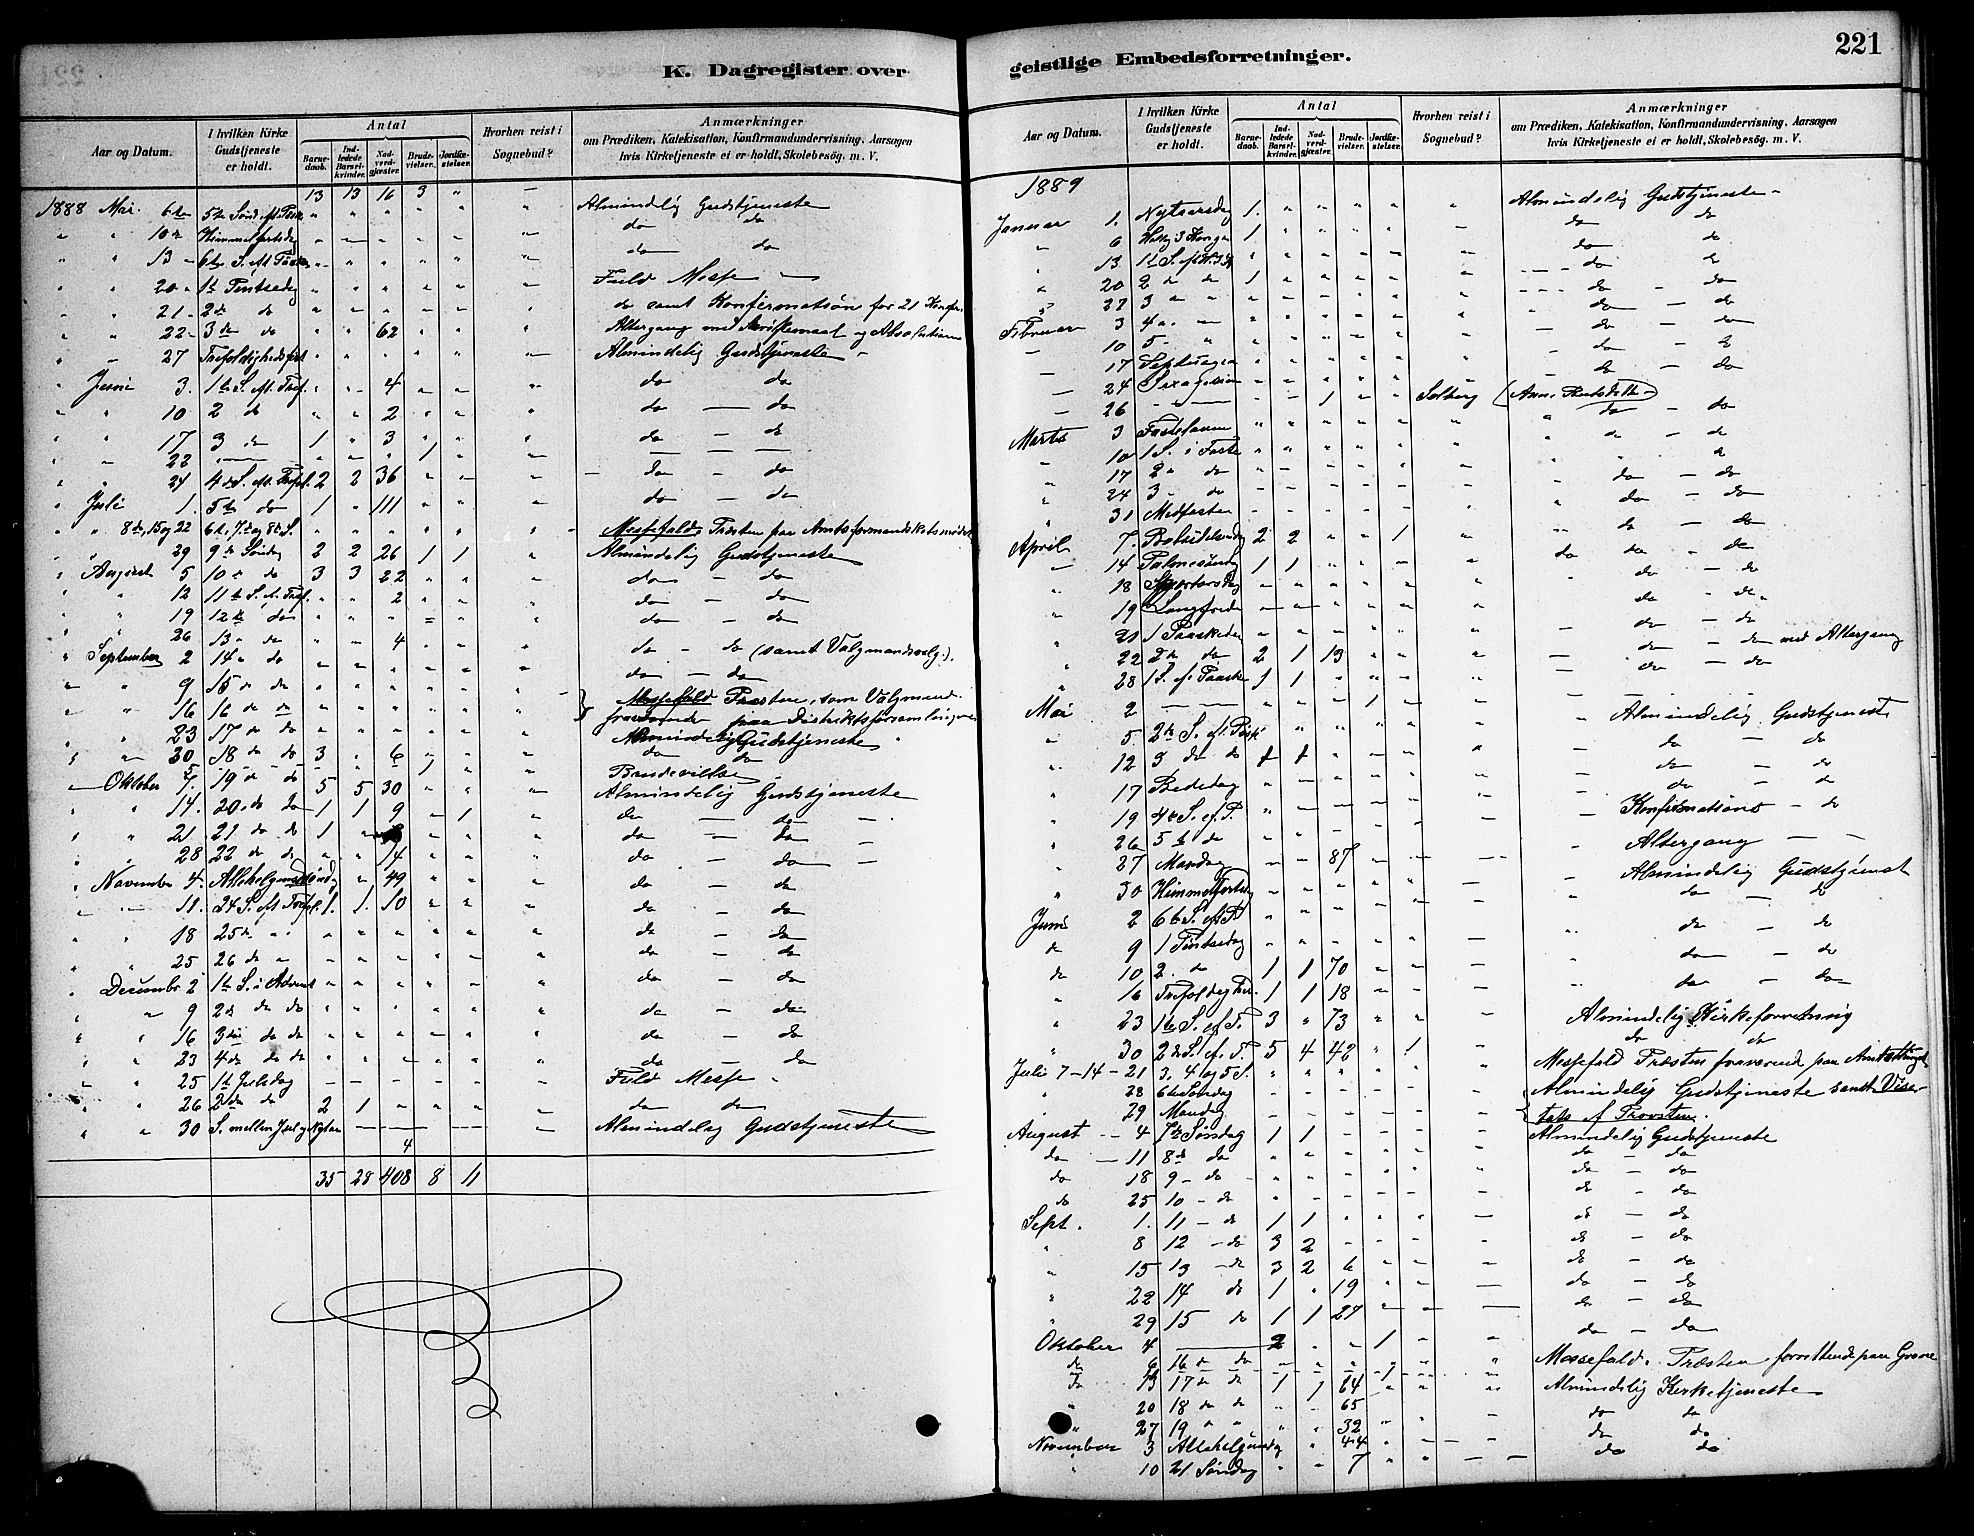 221
K. Dagregister over
Aar og Datum.
I hvilken Kirke Gudstjeneste er holdt.
Antal
Barnedaab.
Indledede Barselkvinder.
Nadverdgjæster.
Brudevielser.
Jordfæstelser.
Hvorhen reist i Sognebud?
Anmærkninger
om Prædiken, Katekisation, Konfirmandundervisning, Aarsagen
hvis Kirketjeneste ei er holdt, Skolebesög, m. V.
13 13 16 3 " —
1888 Mai. 6te 5te Sönd. eft. Paaske " " " " " " Almindelig Gudstjeneste
" " 10de Himmelfartsdag " — " " " " do do
" " 13 - 6te S. eft. Paaske " " " " " " do do
" " 20 " 1te Pintsedag " " " " " " Fuld Messe —
" " 21 - 2den do " " " " " " do samt Konfirmation for 21 Konfir.
" " 22 - 3de do " " 62 " " " Altergang med Skriftemaal og Absolution
" " 27 Trefoldighedsfest " " " " " " Almindelig Gudstjeneste
" Juni 3. 1te S. eft. Tref. " " 4 " " " do do
" " 10 2 do " " 2 " " " do — do
" " 17 3 do 1 " 3 " " " do — do
" " 22 " — " " " 1 " " — — —
" " 24 4de S. eft. Tref. 2 2 36 " " " do — do
" Juli 1. 5te do 1 " 111 " " " do — do
" " 8de, 15 og 22 6te, 7de og 8de S. " " " " " " Messefald. Præsten paa Amtsformandskabsmødet
" " 29 9de Söndag 2 2 26 1 1 " Almindelig Gudstjeneste
" August 5 10de do 3 3 22 " " " do — do
" " 12 11te S. eft. Tref. " " 2 " " " do — do
" " 19 12te do " " " " " " do — do
" " 26 13 " do " " 4 " " " do — do (samt Valgmandsvalg).
" September 2 14 " do " " " " " " do — do
" " 9 15 do do " " " " " " Messefald Præsten, som Valgmand
" " 16 16 do do " " " " " " fraværende paa Distriktsforsamlingen
" " 23 17 do do " " " " " " Almindelig Gudstjeneste
" " 30 18 do do 3 " 6 " " " do do
5 — — — — — 1 " " Brudevielse
" Oktober 7. 19 do do 5 5 30 " " " Almindelig Gudstjeneste
" " 14. 20. do do 1 1 9 — 1 " do — do —
" " 21. 21 do do 1 " " " " do — do
" " 28 22 do do " " 14 " " " do — do —
" November 4. Allehelgensdag " " 49 " " " do — do
" " 11. 24 S. eft Tref. 1. 1. 10 " " " do — do
" " 18 25de " " " " " " " " do — do
" " 25 26 do " " " " " " " do — do
" December 2 1te S. i Advent " " " " " " do — do
" " 9 2den do do " " " " " " do — do
" " 16 3die do do " " " " " " do — do
" " 23 4de do do " " " " " " do — do
" " 25 1te Juledag — — — — — — Fuld Messe
" " 26 2den do 2 1 " " " " do do
" " 30 S. mellem Jul og Nytaar — — — — — — Almindelig Gudstjeneste
4
35 28 408 8 11
geistlige Embedsforretninger.
Aar og Datum.
I hvilken Kirke Gudstjeneste er holdt.
Antal
Barnedaab.
Indledede Barselkvinder.
Nadverdgjæster.
Brudevielser.
Jordfæstelser.
Hvorhen reist i Sognebud?
Anmærkninger
om Prædiken, Katekisation, Konfirmandundervisning, Aarsagen
hvis Kirketjeneste ei er holdt, Skolebesög, m. V.
1889
Januar 1. Nytaarsdag 1. " " " " " Almindelig Gudstjeneste
" 6 Hellig 3 Konger 1 " " " " — do do
" 13 1te S. " " " " " " do do
" 20 2 do do 1 " " " " " do do
" 27 3 " " " " " " " " do — do
Februar 3 4 " — " " " " " " do — do
— 10 5 - " " " " " " " do — do
— 17 Septuages. " " " " " " do — do
— 24 Sexagesim " " " " " " do — do
— 26 — — " " " 1 " Solberg
Marts 3 Fastelavn " " " " " " do — do
" 10 1 S. i Faste " " " " " " do — do
" 17 2 " do " " " " " " do
" 24 3 - do " " " " " " do — do
" 31 Midfasten " " " " " " do — do
April 7. 2 2 " " 1 " do — do
— 14 Palmesönd. 1 1 " " " " do do — do
18 Skjærtorsdag " " " " " " do — do
19 Langfredag — — — " " " do — do
" 21 1 Paaskedag " " " " " " do — do
" 22 2den do 2 1 13 " " " do — do med Altergang
" 28 1 S. ef. Paaske 1 1 " " " " do — do
Mai 2 — — " " " 1 " "
" 5. 2den S. ef. Paask. " " " " " Almindelig Gudstjeneste
" 12 3 do do 1 1 " " " " do — do
" 17 Bededag " " " " " " do — do
" 19 4de S. ef. P. " " " " " " do — do
" 26 5te do " " " " " " Konfirmations — do
" 27 Mandag — — 87 — — — Altergang — —
" 30 Himmelfartsdag " " " " " — Almindelig Gudstjenest
Juni 2 6te S. ef. P. " " " " " " do — do
do 9 1 Pintsedag " " " " " — do — do
do 10 2. do 1 1 70 " " — do — do
" 16 Trefoldighed 1 1 18 " " — do — do
" 23 1te S. ef. T. 3 " 73 " " — Almindelig Kirkeforretning
" 30 2de S. ef. T. 5 4 42 " 1 — do do
Juli 7-14-21 3. 4 og 5 S. " " " " " " Messefald Præsten fraværende paa Amtsthinget
" 28 6te Søndag " " " " " " Almindelig Gudstjeneste samt Visi-
" 29 Mandag " " " " " " tats af Provsten.
August — 4 7de Søndag 1 1 — — — — Almindelig Gudstjeneste
do — 11 8de do " " " " " " do — do
do 18 9 - do - " " " " " " do — do
do 25 10 - do " — — — — — do — do
Sept. 1. 11 - do 1 1 " " " — do — do
" 8 12 - do 3 2 — — — — do — do
" 15 13 - do 3 2 6 " " — do — do
" 22 14 do 1 . 19 " — — do — do
" 29 15 do 1 1 27 " — — do — do
Oktober 4 — 2 . " 1 " " do — do
do 6 16 do do " " " " " " Messefald. Præsten forrettende paa Grane
do 13 17 do do 1 1 64 " " " Almindelig Kirketjeneste
" 20 18 do do " " 65 do do
" 27 19 " " " " 32 " " — do do
November 3 Allehelgensdag " " 44 " — — do do
" 10 21 Søndag " " 7 " " —